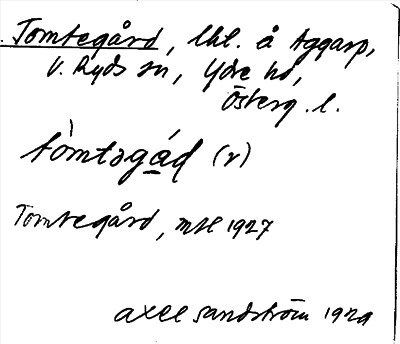 Tomtegård, lht. å Aggarp,
V. Ryds sn, Ydre hd,
Österg. l.
tòmtəgád (r)
Tomtegård, mtl 1927
Axel Sandström 1929